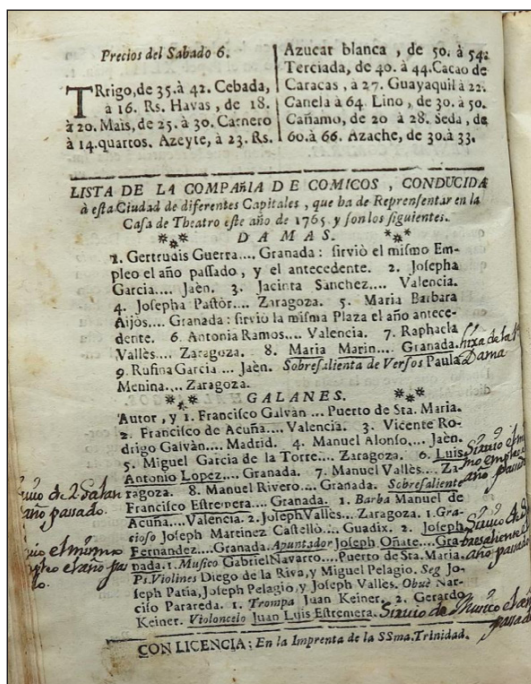 Precios del Sabado 6.
TRrigo, de 35. à 42. Cebada,
a 16. Rs. Havas, de 18.
à 20. Mais, de 25. à 30. Carnero
à 14. quartos. Azeyte, à 23. Rs.
Azucar blanca, de 50. à 54.
Terciada, de 40. à 44. Cacao de
Caracas, à 27. Guayaquil à 22.
Canela à 64. Lino, de 30. à 50.
Cañamo, de 20 à 28. Seda, de
60. à 66. Azache, de 30. à 33.
LISTA DE LA COMPAñIA DE COMICOS, CONDUCIDA
à esta Ciudad de diferentes Capitales, que ha de Reprensentar en la
Casa de Theatro este año de 1765. y son los siguientes.
DAMAS.
1. Gertrudis Guerra.... Granada: sirviò el mismo Em-
pleo el año passado, y el antecedente. 2. Josepha
Garcia.... Jaèn. 3. Jacinta Sanchez.... Valencia.
4. Josepha Pastòr.... Zaragoza. 5. Maria Barbara
Aijòs.... Granada: sirviò la misma Plaza el año antece-
dente. 6. Antonia Ramos.... Valencia. 7. Raphaela
Vallès.... Zaragoza. 8. Maria Marin.... Granada. hixa de la 1ª
9. Rufina Garcia.... Jaèn. Sobresalienta de Versos Paula Dama
Menina.... Zaragoza.
GALANES.
Autor, y 1. Francisco Galvàn... Puerto de Sta. Maria.
2. Francisco de Acuña.... Valencia. 3. Vicente Ro-
drigo Galvàn.... Madrid. 4. Manuel Alonso.... Jaèn.
5. Miguel Garcia de la Torre.... Zaragoza. 6. Luis
Antonio Lopez.... Granada. 7. Manuel Vallès.... Za-
ragoza. 8. Manuel Rivero.... Granada. Sobresaliente
Francisco Estremera.... Granada. 1. Barba Manuel de
Acuña.... Valencia. 2. Joseph Vallès... Zaragoza. 1. Gra-
cioso Joseph Martinez Castellò.... Guadix. 2. Joseph
Fernandez.... Granada. Apuntador Joseph Oñate.... Gra-
nada. 1. Musico Gabriel Navarro.... Puerto de Sta. Maria.
Ps. Violines Diego de la Riva, y Miguel Pelagio. Seg Jo-
seph Patia, Joseph Pelagio, y Joseph Valles. Obuè Nar-
ciso Parareda. 1. Trompa Juan Keiner. 2. Gerardo
Keiner. Violoncelo Juan Luis Estremera. Sirvio de Musico el año
pasado
año pasado
Sirvio de 2 Galan
año pasado.
el mismo
el año pa
Sirvio de
año pasado
CON LICENCIA: En la Imprenta de la SSma. Trinidad.